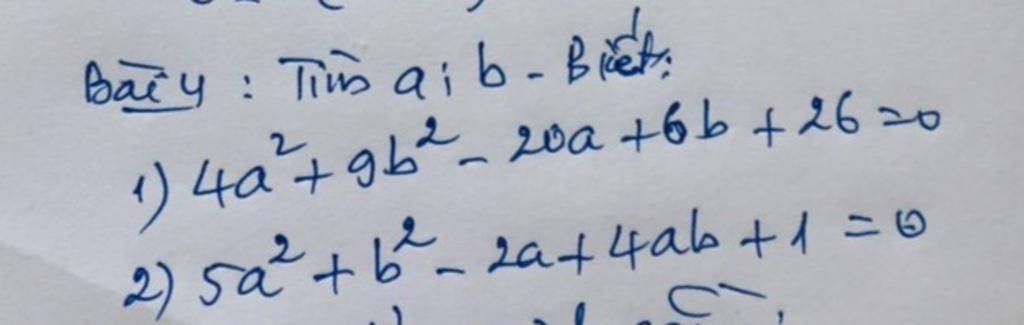 Bài 4 : Tìm a; b - Biết:
1) 4a² + 9b² - 20a + 6b + 26 = 0
2) 5a² + b² - 2a + 4ab + 1 = 0